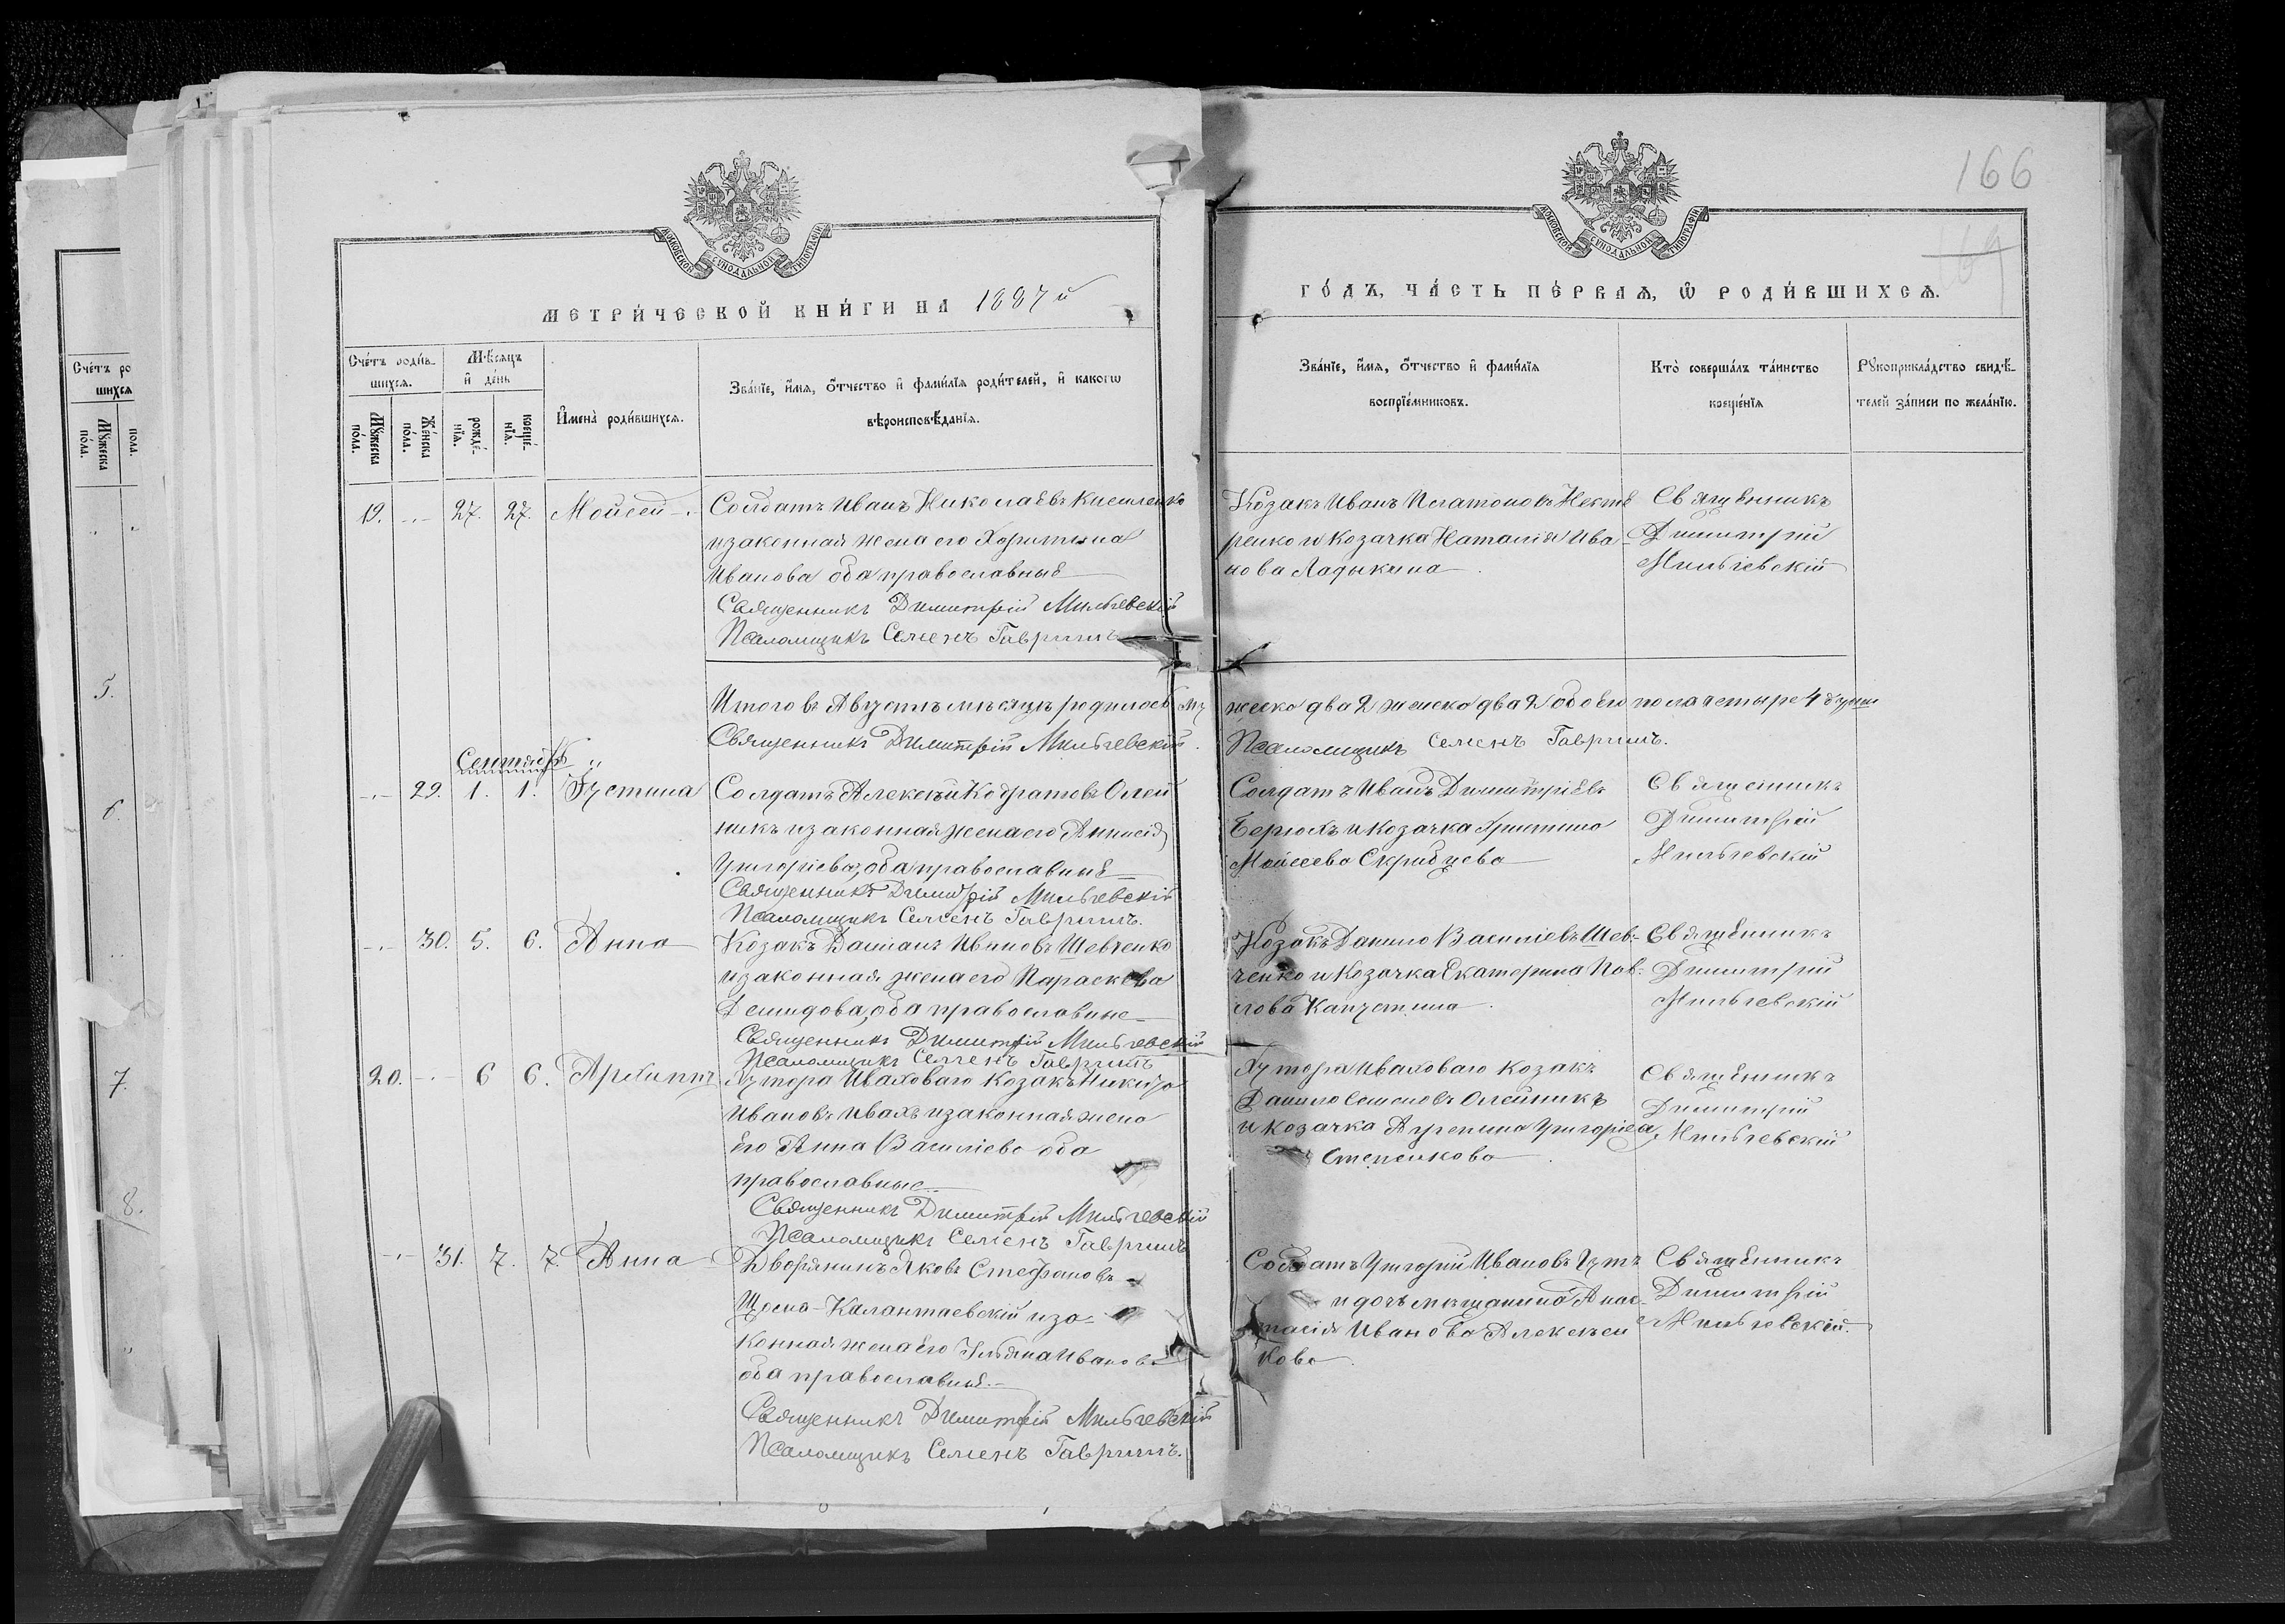 166
МОСКОВСКОЙ СѴНОДАЛЬНОЙ ТИПОГРАФІИ
МОСКОВСКОЙ СѴНОДАЛЬНОЙ ТИПОГРАФІИ
МЕТРИ́ЧЕСКОЙ КНИ́ГИ НА 1887 й
ГО́ДЪ, ЧА́СТЬ ПЕ́РВАѦ, Ѿ РОДИ́ВШИХСѦ.
Сче́тъ роди́в-
шихсѧ.
Мѣ́сѧцъ
и҆ де́нь
Мꙋ́жеска по́ла.
Же́нска по́ла.
рожде́-
нїѧ.
креще́-
нїѧ.
И҆мена̀ роди́вшихсѧ.
Зва́нїе, и҆́мѧ, ѻ҆́тчество и҆ фами́лїѧ роди́телей, и҆ какогѡ
вѣроисповѣ́данїѧ.
Зва́нїе, и҆́мѧ, ѻ҆́тчество и҆ фами́лїѧ
воспрїе́мниковъ.
Кто̀ соверша́лъ та́инство
креще́нїѧ
Рꙋкоприкла́дство свидѣ́-
телей за́писи по жела́нїю.
19. -.- 27. 27. Мойсей
Солдатъ Иванъ Николаевъ Киешенко
изаконная жена его Харитина
Иванова оба православные
Священникъ Димитрій Мильгевскій
Псаломщикъ Семенъ Гавришъ
Козакъ Иванъ Платоновъ Нехте
ренко и козачка Наталія Ива-
нова Ладыкина
Священникъ
Димитрій
Мильгевскій
Итого въ Августѣ мѣсяцѣ родилось му
жеска два 2 женска два 2 обоего пола четыре 4 души
Священникъ Димитрій Мильгевскій.
Псаломщикъ Семенъ Гавришъ.
Сентябрь
-.- 29. 1. 1. Іустина
Солдатъ Алексѣй Кодратовъ Олей
никъ изаконная жена его Анисія
Григоріева, оба православные
Священникъ Димитрій Мильгевскій
Псаломщикъ Семенъ Гавришъ.
Солдатъ Иванъ Димитріевъ
Берюхъ и козачка Христина
Моисеева Скрибцева
Священникъ
Димитрій
Мильгевскій
-.- 30. 5. 6. Анна
Козакъ Даміанъ Ивановъ Шевченко
изаконная жена его Параскева
Демидова, оба православные
Священникъ Димитрій Мильгевскій
Псаломщикъ Семенъ Гавришъ
Козакъ Данило Василіевъ Шев-
ченко и Козачка Екатерина Пав-
лова Капустина
Священникъ
Димитрій
Мильгевскій
20. -.- 6 6. Архиппъ
Хутора Иваховаго козакъ Никита
Ивановъ Ивахъ изаконная жена
его Анна Василіева оба
православные
Священникъ Димитрій Мильгевскій
Псаломщикъ Семенъ Гавришъ
Хутора Иваховаго козакъ
Данило Семеновъ Олейникъ
и козачка Агрепина Григоріева
Степенкова
Священникъ
Димитрій
Мильгевскій
-.- 31. 7. 7. Анна
Дворянинъ Яковъ Стефановъ
Щосна-Калантаевскій иза-
конная жена его Ульяна Иванова
оба православные.
Священникъ Димитрій Мильгевскій
Псаломщикъ Семенъ Гавришъ.
Солдатъ Григорій Ивановъ Гутъ
и дочь мѣщанина Анас-
тасія Иванова Алексѣен
кова
Священникъ
Димитрій
Мильгевскій.
Сче́тъ ро
шихсѧ
Мꙋ́жеска по́ла.
пола.
5.
6.
7.
8.